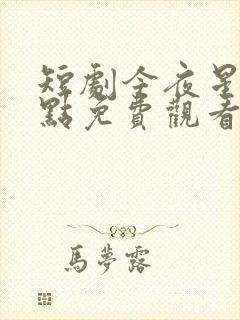 短劇今夜星
點免費觀看
馬夢露